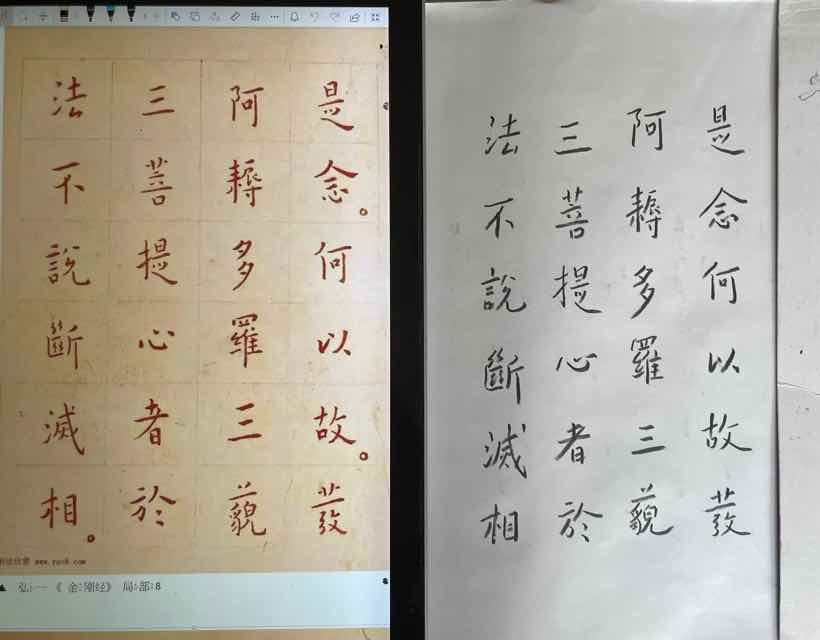 是念。何以故。發
阿耨多羅三藐
三菩提心者於
法不說斷滅相。
▲ 弘一《金刚经》局部8
是念何以故發
阿耨多羅三藐
三菩提心者於
法不說斷滅相